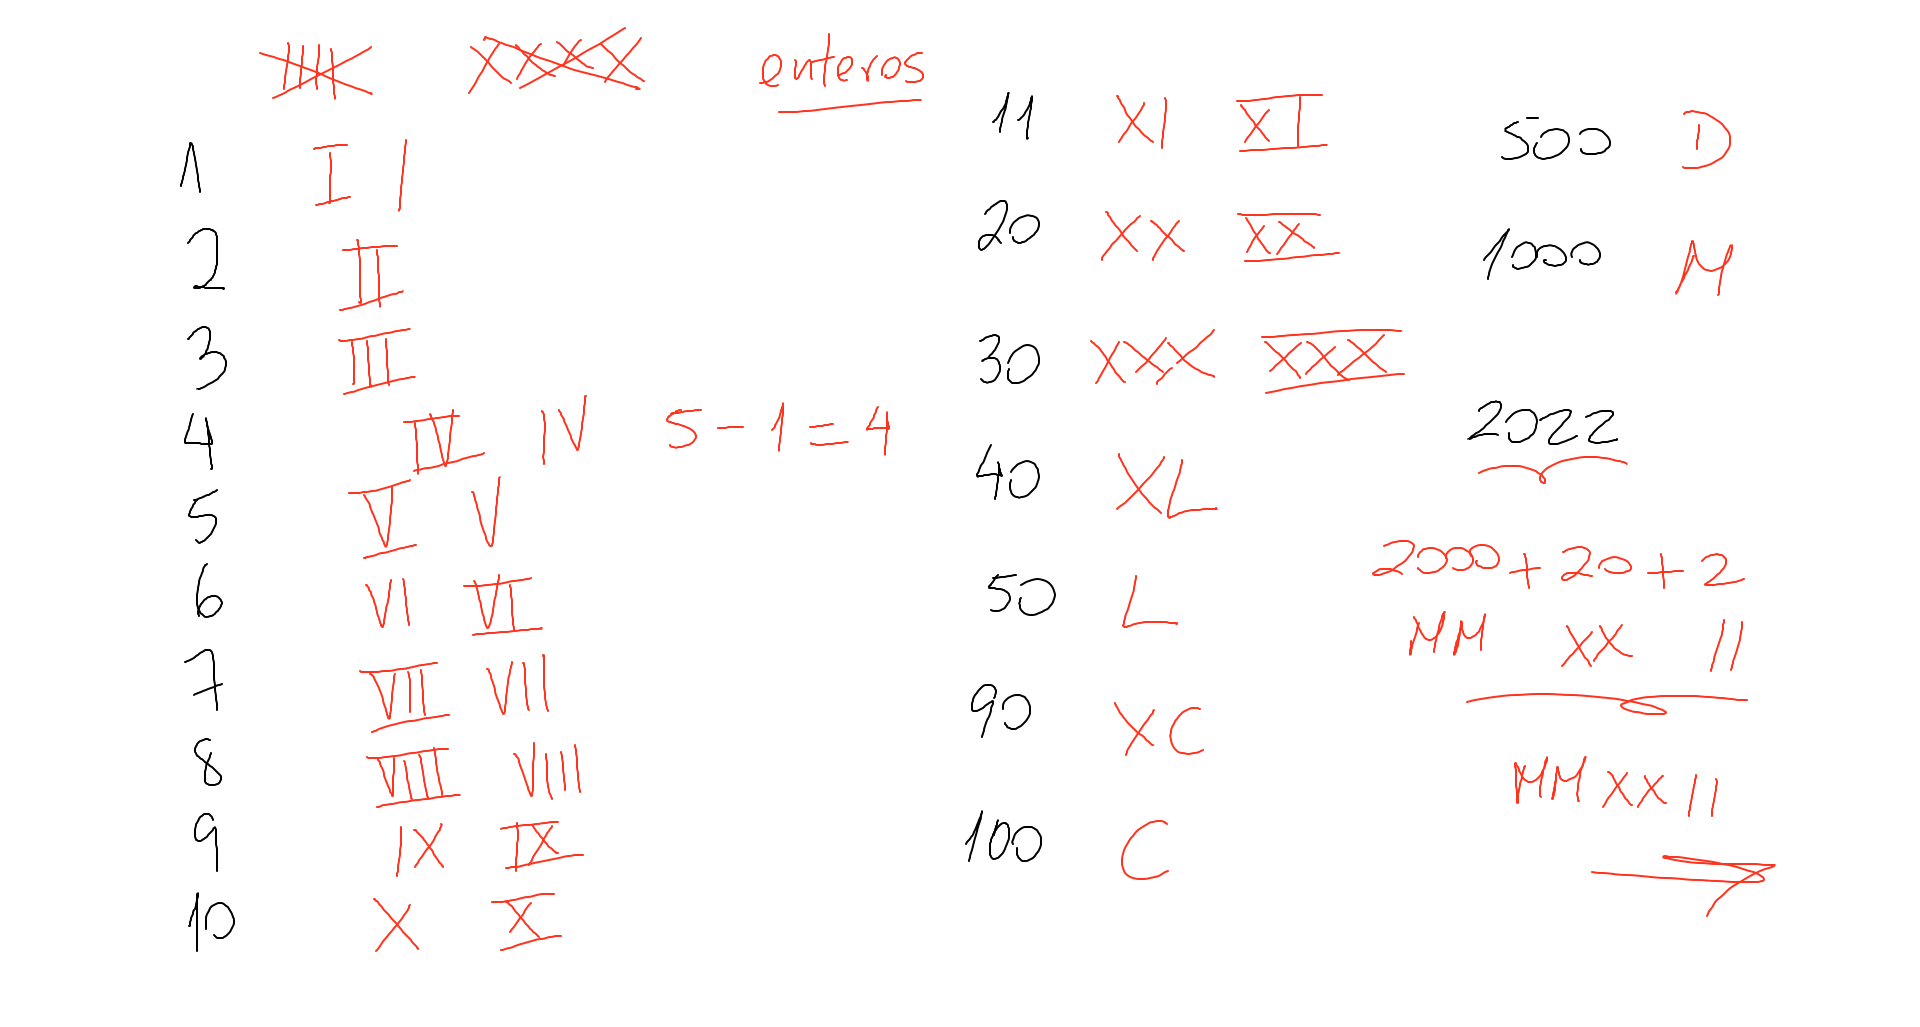 IIII XXXX enteros
1 I I
2 II
3 III
4 IV IV 5 - 1 = 4
5 V V
6 VI VI
7 VII VII
8 VIII VIII
9 IX IX
10 X X
11 XI XI
20 XX XX
30 XXX XXX
40 XL
50 L
90 XC
100 C
500 D
1000 M
2022
2000 + 20 + 2
MM XX II
MMXXII